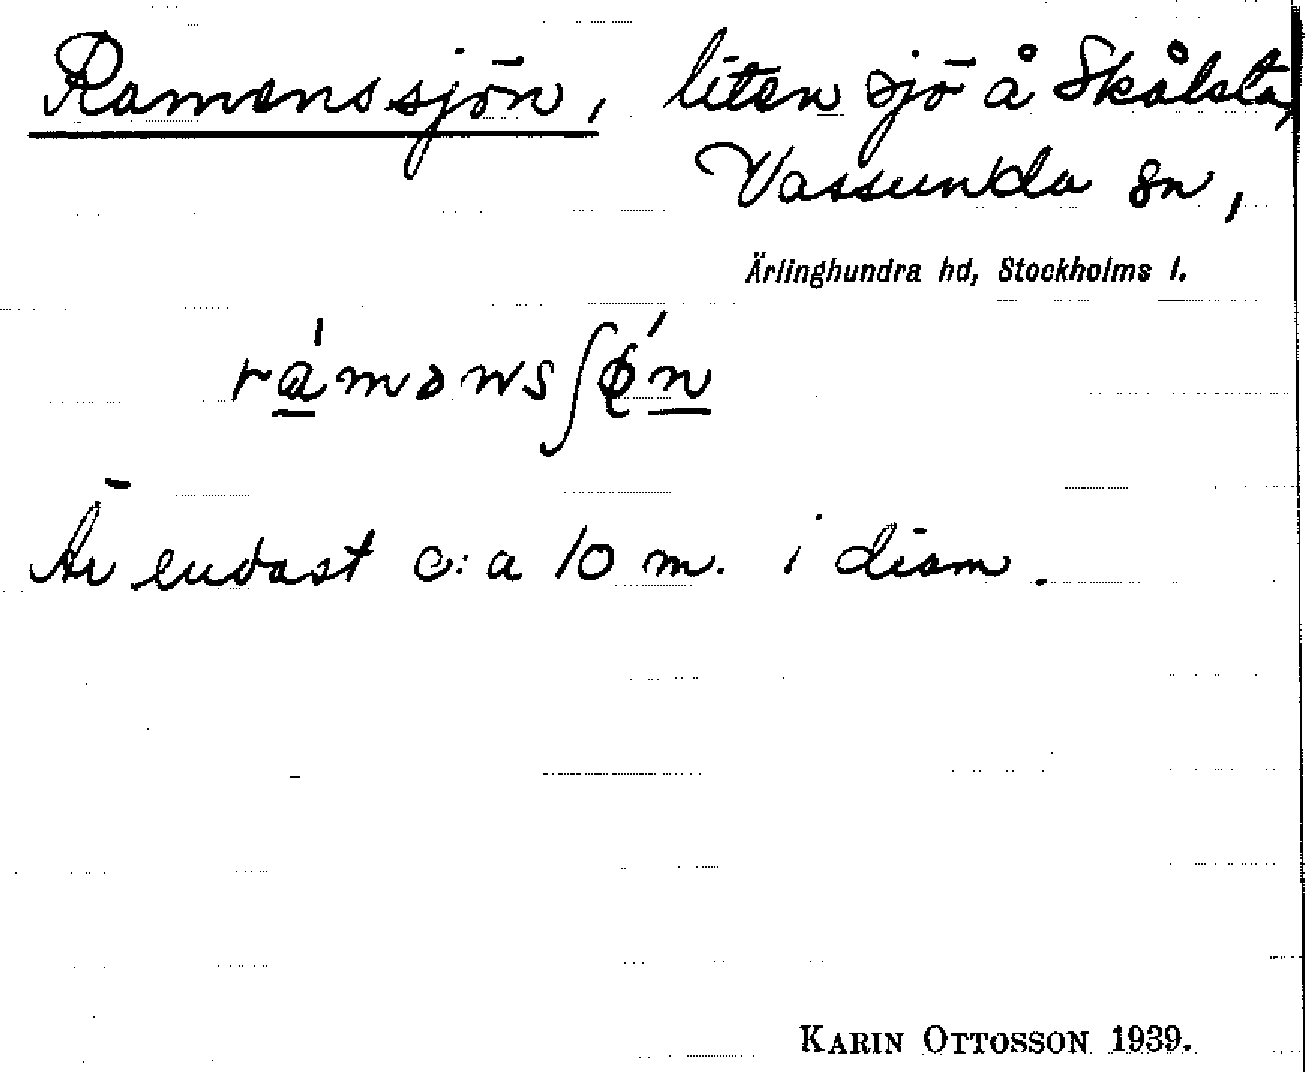 Ramenssjön, liten sjö å Skålsta,
Vassunda sn,
Ärlinghundra hd, Stockholms l.
Är endast c:a 10 m. i diam.
KARIN OTTOSSON 1939.